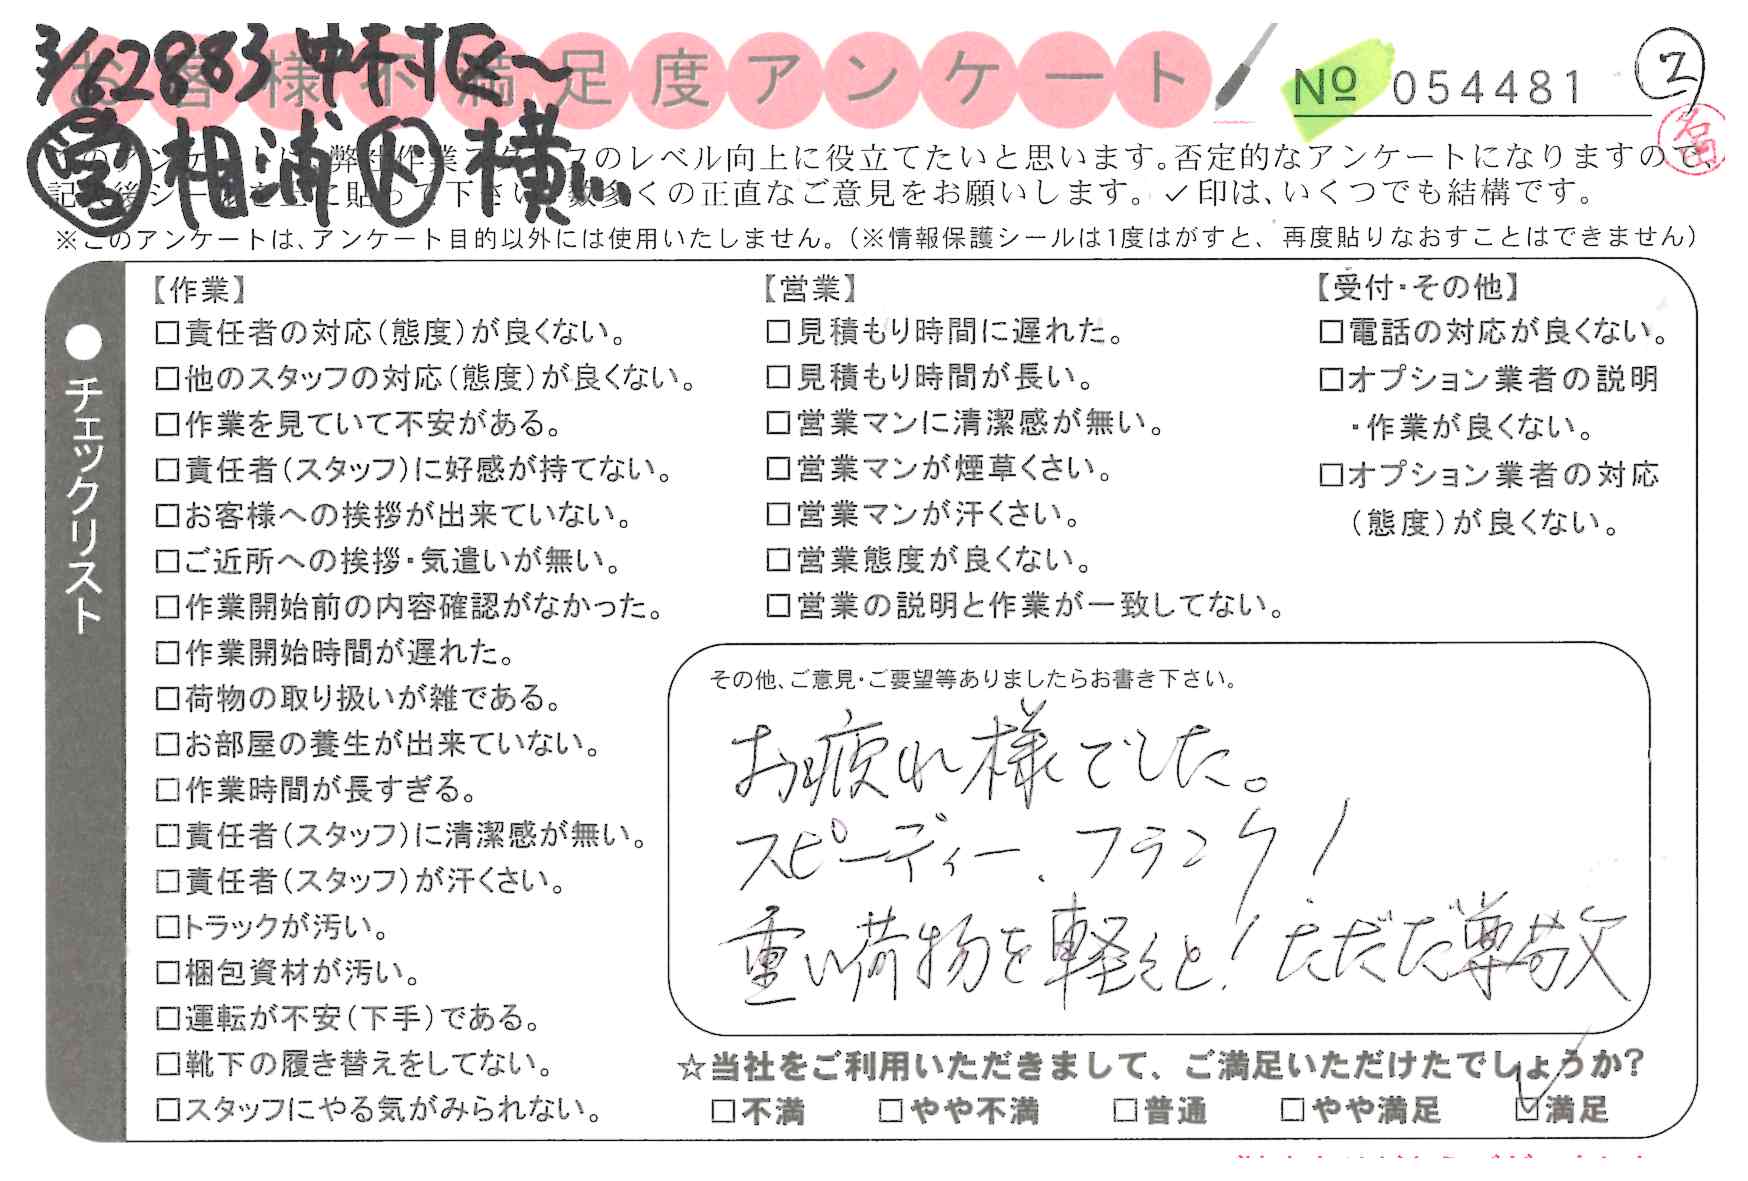 3/6 2883 中村区〜
お客様不満足度アンケート
№ 054481
2
相浦 横
このアンケートは、弊社作業スタッフのレベル向上に役立てたいと思います。否定的なアンケートになりますので、
記入後シールを上に貼って下さい。数多くの正直なご意見をお願いします。✓印は、いくつでも結構です。
※このアンケートは、アンケート目的以外には使用いたしません。（※情報保護シールは1度はがすと、再度貼りなおすことはできません）
●チェックリスト
【作業】
□責任者の対応（態度）が良くない。
□他のスタッフの対応（態度）が良くない。
□作業を見ていて不安がある。
□責任者（スタッフ）に好感が持てない。
□お客様への挨拶が出来ていない。
□ご近所への挨拶・気遣いが無い。
□作業開始前の内容確認がなかった。
□作業開始時間が遅れた。
□荷物の取り扱いが雑である。
□お部屋の養生が出来ていない。
□作業時間が長すぎる。
□責任者（スタッフ）に清潔感が無い。
□責任者（スタッフ）が汗くさい。
□トラックが汚い。
□梱包資材が汚い。
□運転が不安（下手）である。
□靴下の履き替えをしてない。
□スタッフにやる気がみられない。
【営業】
□見積もり時間に遅れた。
□見積もり時間が長い。
□営業マンに清潔感が無い。
□営業マンが煙草くさい。
□営業マンが汗くさい。
□営業態度が良くない。
□営業の説明と作業が一致してない。
【受付・その他】
□電話の対応が良くない。
□オプション業者の説明
・作業が良くない。
□オプション業者の対応
（態度）が良くない。
その他、ご意見・ご要望等ありましたらお書き下さい。
お疲れ様でした。
スピーディー、フランク！
重い荷物を軽々と！ただただ尊敬
☆当社をご利用いただきまして、ご満足いただけたでしょうか？
□不満 □やや不満 □普通 □やや満足 ☑満足